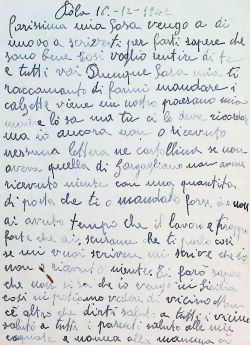 Pola 16.-12-1942
Carissima mia Sara vengo a di
nuovo a scriverti per farti sapere che
sono bene così voglio sentire di te
e tutti voi Dunque Sara mia ti
raccomanto di farmi mandare i
calzette viene un nostro paesano
e lo sa ma tu ci lo deve ricordare
ma io ancora non o ricevuto
nessuna lettera ne cartollina se non
aveva quella di Gargagliano non aveva
ricevuto niente con una quantita
di posta che ti o mandato forse che non
ai avuto tempo che il lavoro e troppo
forte che ai, scusame che ti parlo così
se mi vuoi scrivere mi scrive che io
non o ricevuto niente. Ti farò sapere
che non si sa che io vengo in Sicilia
così ni potiamo vedere di vicino Non
c'è altro che dirti saluto a tutti i vicine
saluto a tutti i parenti saluto alle mie
cognate e nonna alla mamma